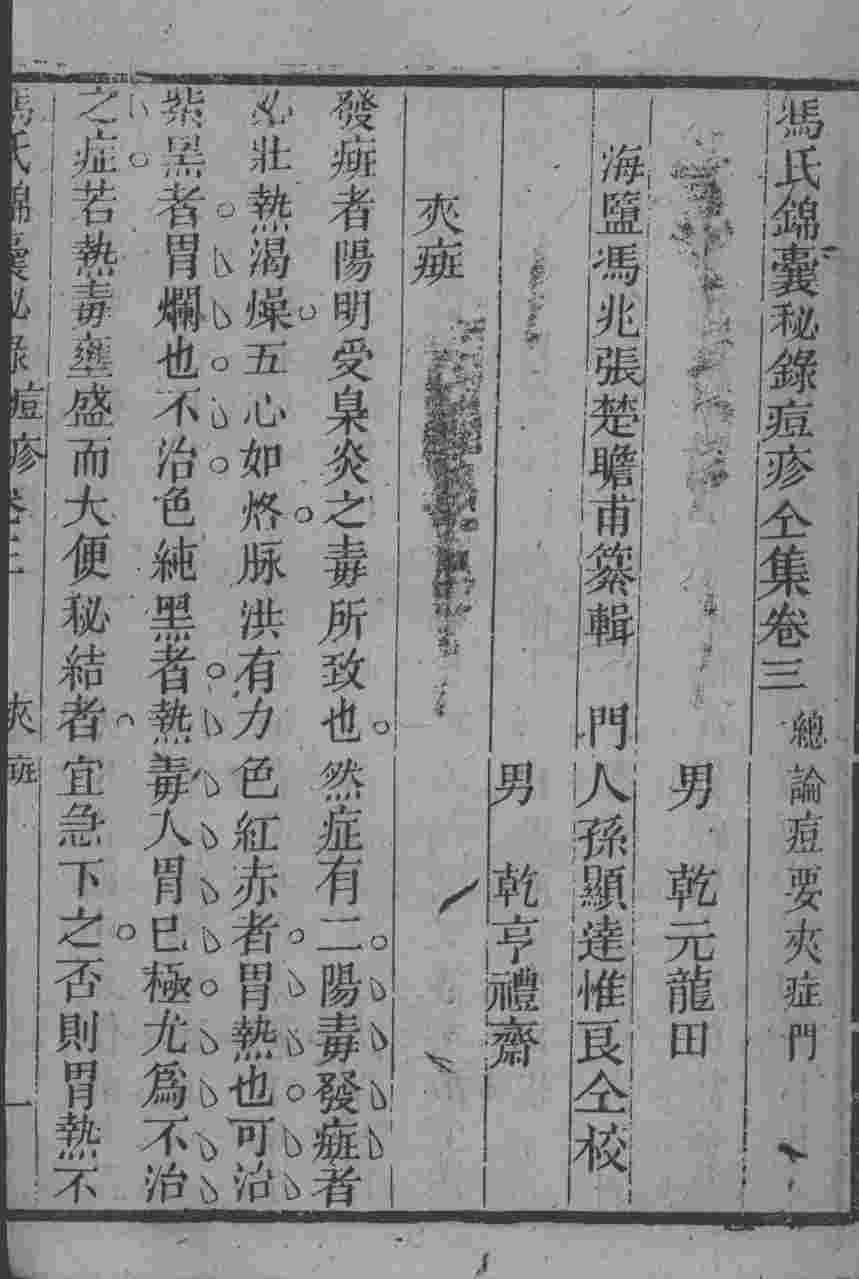 馮氏錦囊秘錄痘疹仝集卷三　總論痘要夾症門
男　乾元龍田
海鹽馮兆張楚瞻甫纂輯　門人孫顯達惟良仝校
男　乾亨禮齋
夾癍
發癍者陽明受臬炎之毒所致也然症有二陽毒發癍者
必壯熱渴燥五心如烙脉洪有力色紅赤者胃熱也可治
紫黑者胃爛也不治色純黑者熱毒人胃巳極尤為不治
之症若熱毒壅盛而大便秘結者宜急下之否則胃熱不
馮氏錦囊秘錄痘疹卷三　夾癍　一